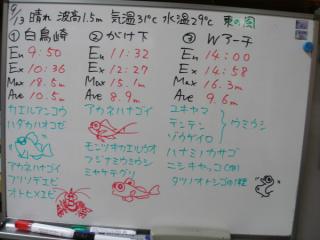 9/13 晴れ 波高1.5m 気温31℃ 水温29℃ 東の風
① 白鳥崎
En 9:50
Ex 10:36
Max 18.5m
Ave 10.5m
カエルアンコウ
ハダカハオコゼ
アカネハナゴイ
アリソデエビ
オトヒメエビ
② がけ下
En 11:32
Ex 12:27
Max 15.1m
Ave 8.9m
アカネハナゴイ
モンツキカエルウオ
フジナミウミウシ
ミヤケテグリ
③ Wアーチ
En 14:00
Ex 14:58
Max 16.3m
Ave 9.6m
ユキヤマ
テンテン ウミウシ
ゾウゲイロ
ハナミノカサゴ
ニシキヤッコ
タツノオトシゴの1種